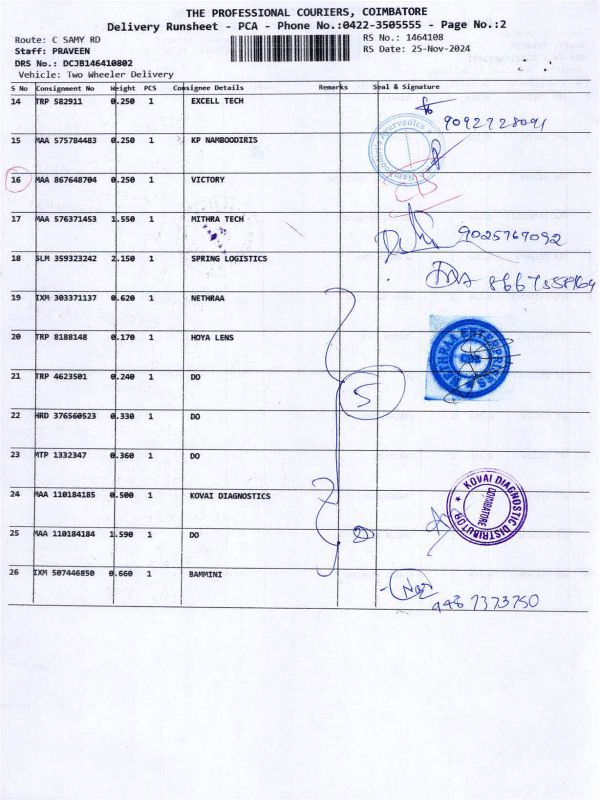 THE PROFESSIONAL COURIERS, COIMBATORE
Delivery Runsheet - PCA - Phone No.:0422-3505555 - Page No.:2
Route: C SAMY RD RS No.: 1464108
Staff: PRAVEEN RS Date: 25-Nov-2024
DRS No.: DCJB146410802
Vehicle: Two Wheeler Delivery
S No Consignment No Weight PCS Consignee Details Remarks Seal & Signature
14 TRP 582911 0.250 1 EXCELL TECH
9092728091
15 MAA 575784483 0.250 1 KP NAMBOODIRIS
16 MAA 867648704 0.250 1 VICTORY
17 MAA 576371453 1.550 1 MITHRA TECH
9025767092
18 SLM 359323242 2.150 1 SPRING LOGISTICS
19 IXM 303371137 0.620 1 NETHRAA
20 TRP 8188148 0.170 1 HOYA LENS
NETHRAA ENTERPRISES
CBE
21 TRP 4623501 0.240 1 DO
5
22 HRD 376560523 0.330 1 DO
23 MTP 1332347 0.360 1 DO
24 MAA 110184185 0.500 1 KOVAI DIAGNOSTICS
KOVAI DIAGNOSTIC DISTRIBUTOR
COIMBATORE
25 MAA 110184184 1.590 1 DO
26 IXM 507446850 0.660 1 BAMMINI